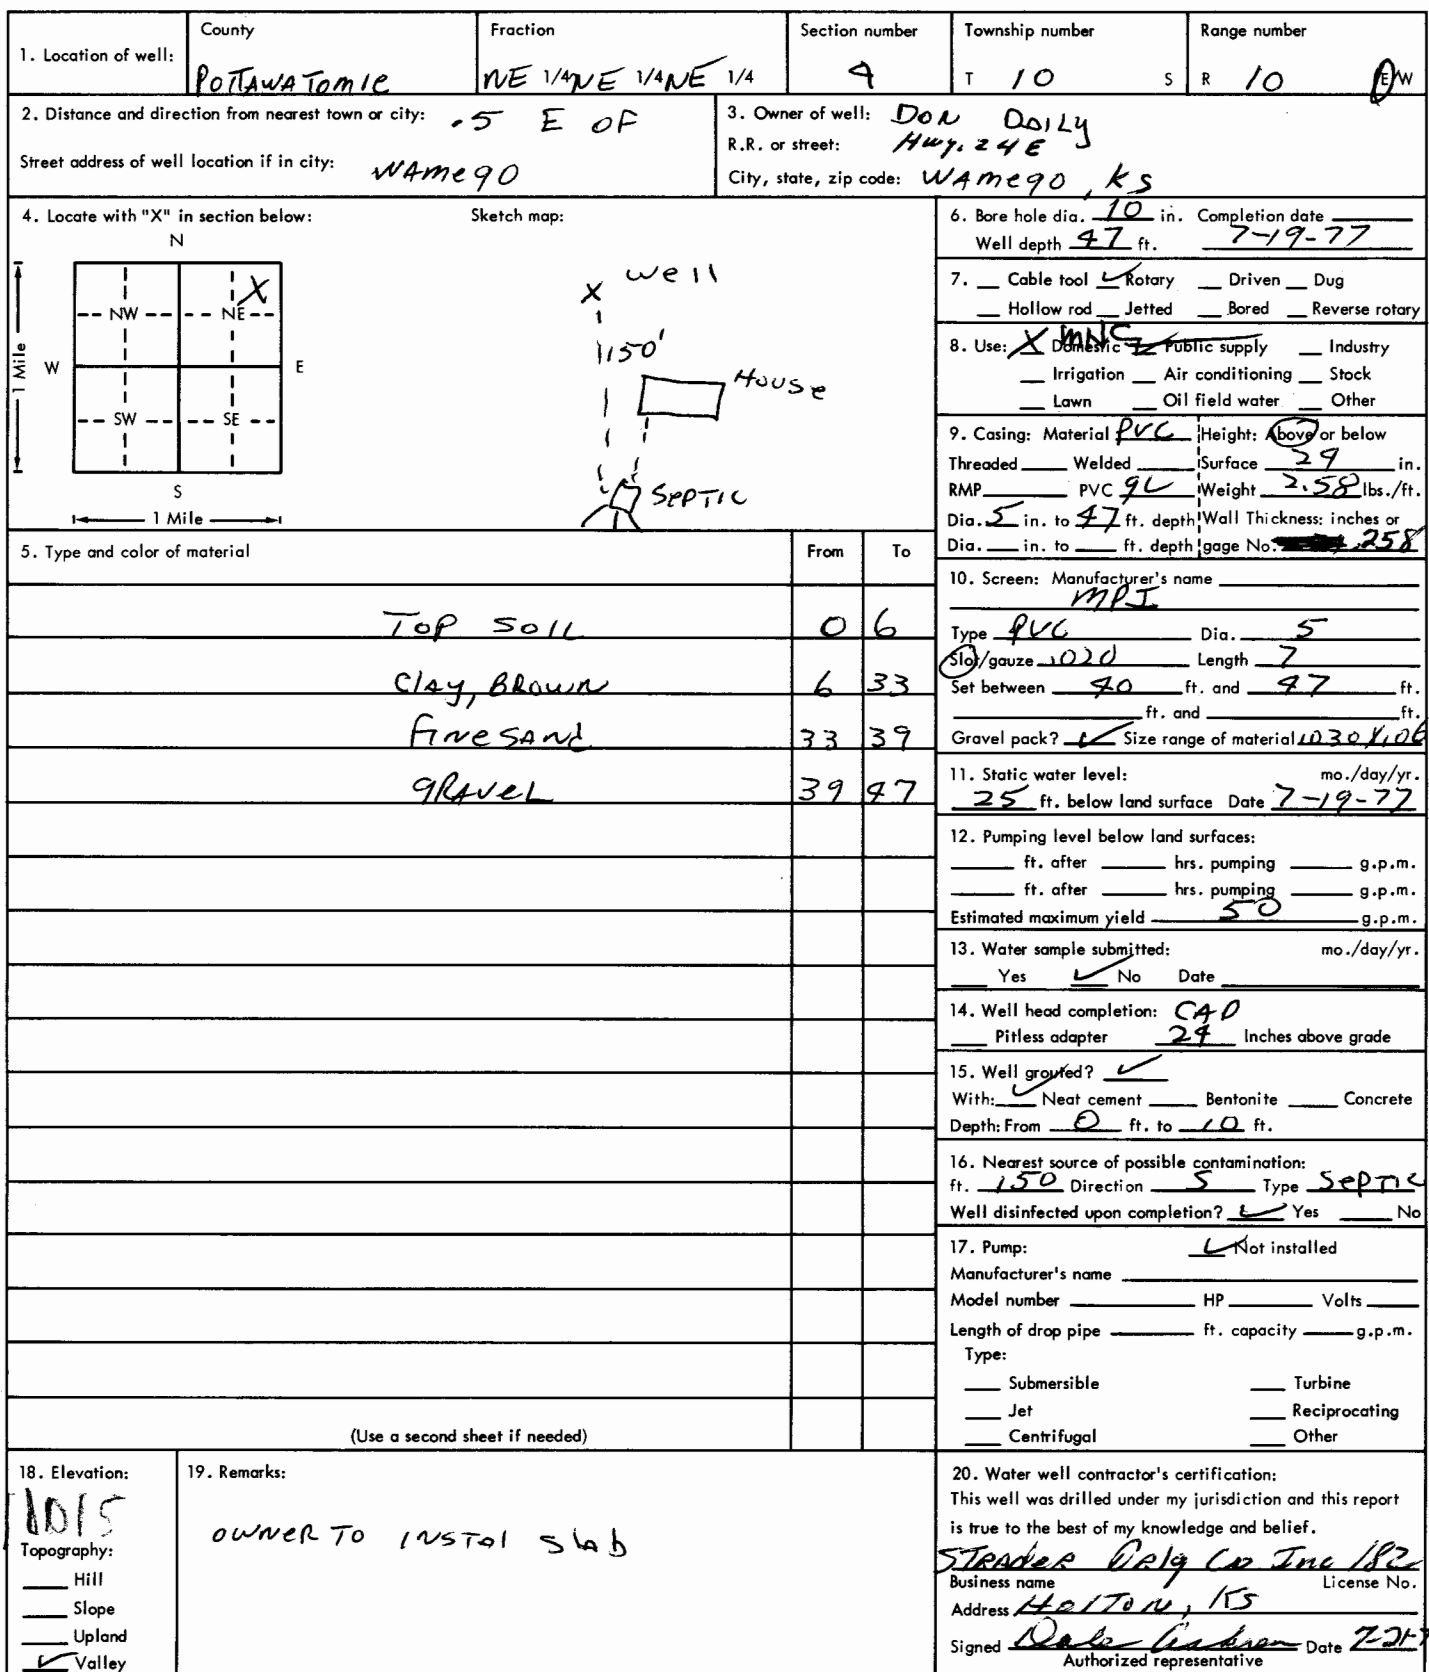 1. Location of well:
County
Pottawatomie
Fraction
NE 1/4 NE 1/4 NE 1/4
Section number
4
Township number
T 10 S
Range number
R 10 E/W
2. Distance and direction from nearest town or city: .5 E OF
Street address of well location if in city: WAmego
3. Owner of well: DON DOILy
R.R. or street: Hwy. 24E
City, state, zip code: WAmego, KS
4. Locate with "X" in section below:
N
NW NE X
W E
SW SE
S
1 Mile
1 Mile
Sketch map:
X well
150'
House
SEPTIC
5. Type and color of material From To
Top Soil 0 6
Clay, Brown 6 33
Fine sand 33 39
gravel 39 47
(Use a second sheet if needed)
6. Bore hole dia. 10 in. Completion date
Well depth 47 ft. 7-19-77
7. Cable tool ✓ Rotary Driven Dug
Hollow rod Jetted Bored Reverse rotary
8. Use: X Domestic Public supply Industry
Irrigation Air conditioning Stock
Lawn Oil field water Other
9. Casing: Material PVC Height: Above or below
Threaded Welded Surface 24 in.
RMP PVC GL Weight 2.58 lbs./ft.
Dia. 5 in. to 47 ft. depth Wall Thickness: inches or
Dia. in. to ft. depth gage No. .258
10. Screen: Manufacturer's name
MPI
Type PVC Dia. 5
Slot/gauze .020 Length 7
Set between 40 ft. and 47 ft.
ft. and ft.
Gravel pack? ✓ Size range of material
11. Static water level: mo./day/yr.
25 ft. below land surface Date 7-19-77
12. Pumping level below land surfaces:
ft. after hrs. pumping g.p.m.
ft. after hrs. pumping g.p.m.
Estimated maximum yield 50 g.p.m.
13. Water sample submitted: mo./day/yr.
Yes ✓ No Date
14. Well head completion: CAP
Pitless adapter 24 Inches above grade
15. Well grouted? ✓
With: ✓ Neat cement Bentonite Concrete
Depth: From 0 ft. to 10 ft.
16. Nearest source of possible contamination:
ft. 150 Direction S Type Septic
Well disinfected upon completion? ✓ Yes No
17. Pump: ✓ Not installed
Manufacturer's name
Model number HP Volts
Length of drop pipe ft. capacity g.p.m.
Type:
Submersible Turbine
Jet Reciprocating
Centrifugal Other
18. Elevation:
1015
Topography:
Hill
Slope
Upland
✓ Valley
19. Remarks:
OWNER TO INSTAl Slab
20. Water well contractor's certification:
This well was drilled under my jurisdiction and this report
is true to the best of my knowledge and belief.
STRADER Drlg Co Inc 182
Business name License No.
Address Holton, KS
Signed Dale Date
Authorized representative